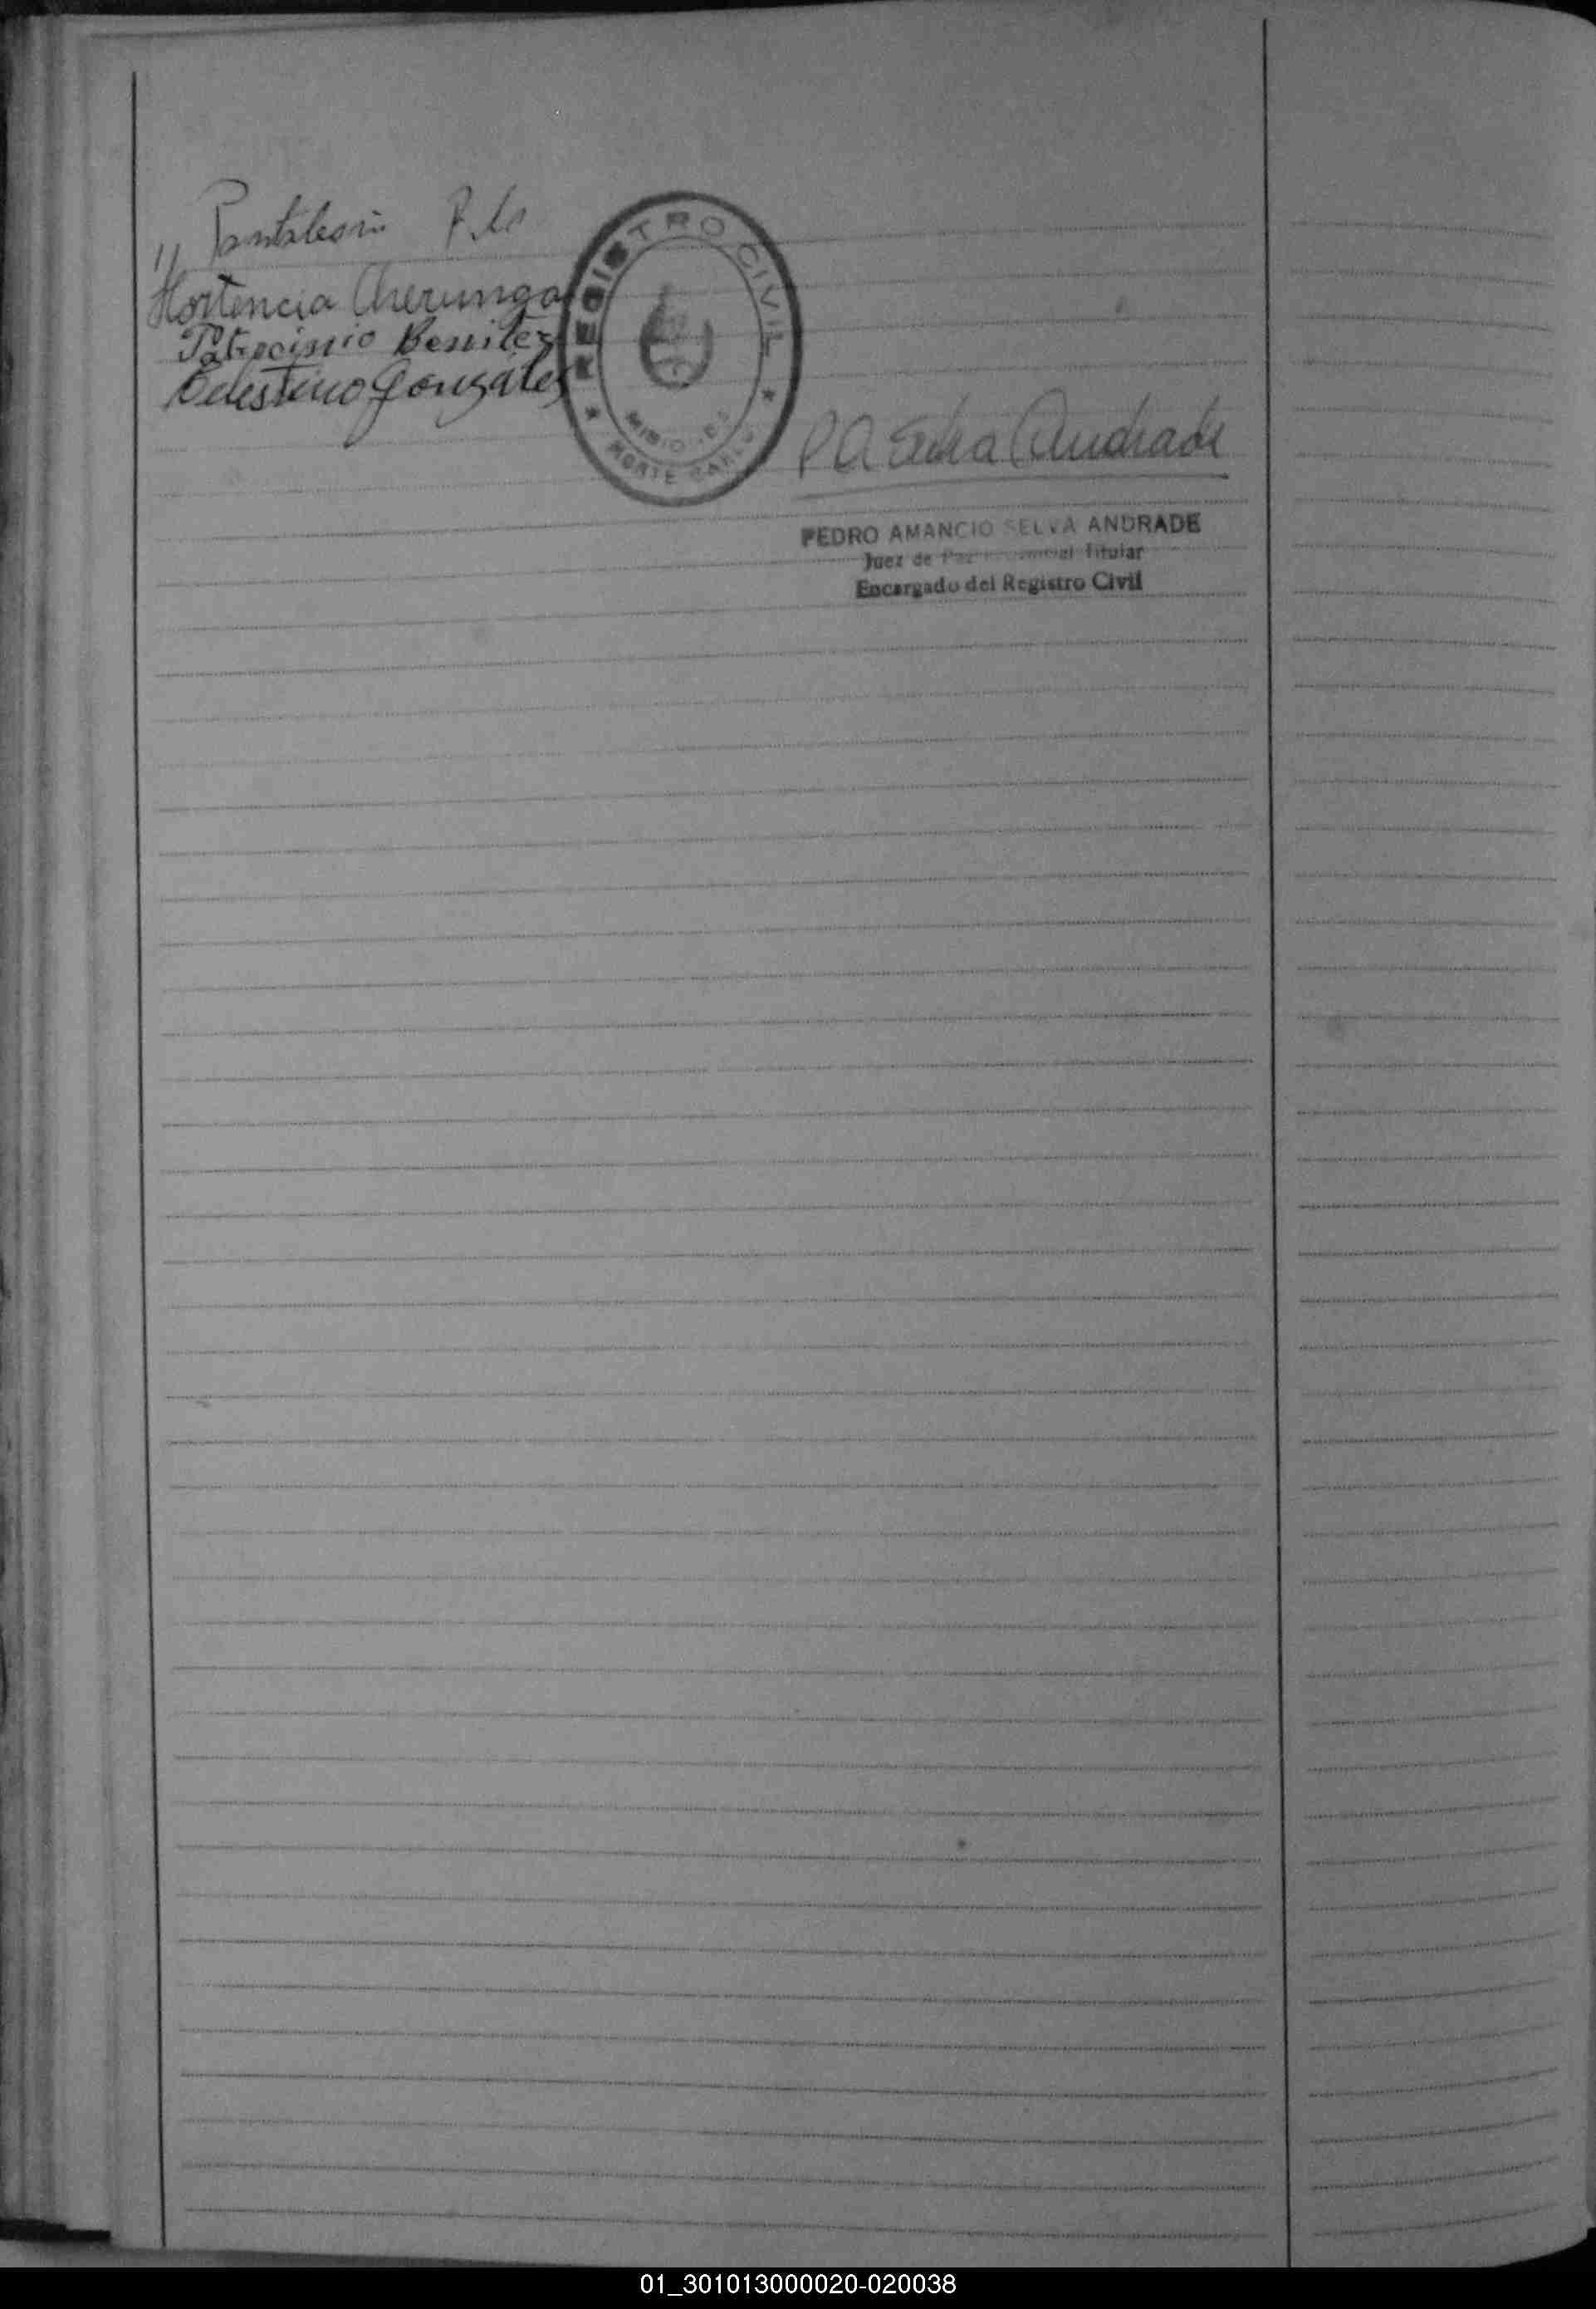 // Pantaleón
Hortencia Cherunga
Patrocinio Benitez
Celestino Gonzales
REGISTRO CIVIL
MISIONES
MONTE CARLO
P A Selva Andrade
PEDRO AMANCIO SELVA ANDRADE
Juez de Paz Titular
Encargado del Registro Civil
01_301013000020-020038